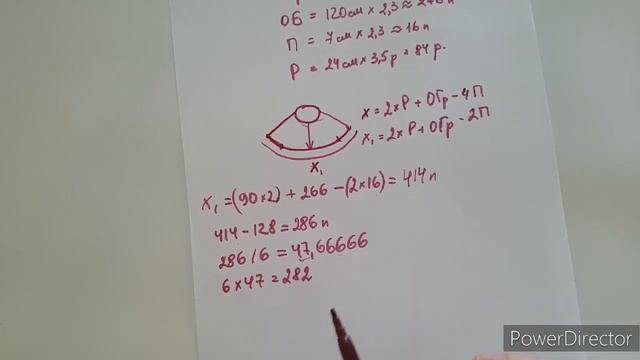 ОБ = 120см × 2,3 ≈ 276 п
П = 7см × 2,3 ≈ 16п
Р = 24см × 3,5р = 84 р.
X = 2×Р + ОГр – 4П
X₁ = 2×Р + ОГр – 2П
X₁
X₁ = (90×2) + 266 – (2×16) = 414 п
414 – 128 = 286 п
286 / 6 = 47,66666
6 × 47 = 282
PowerDirector